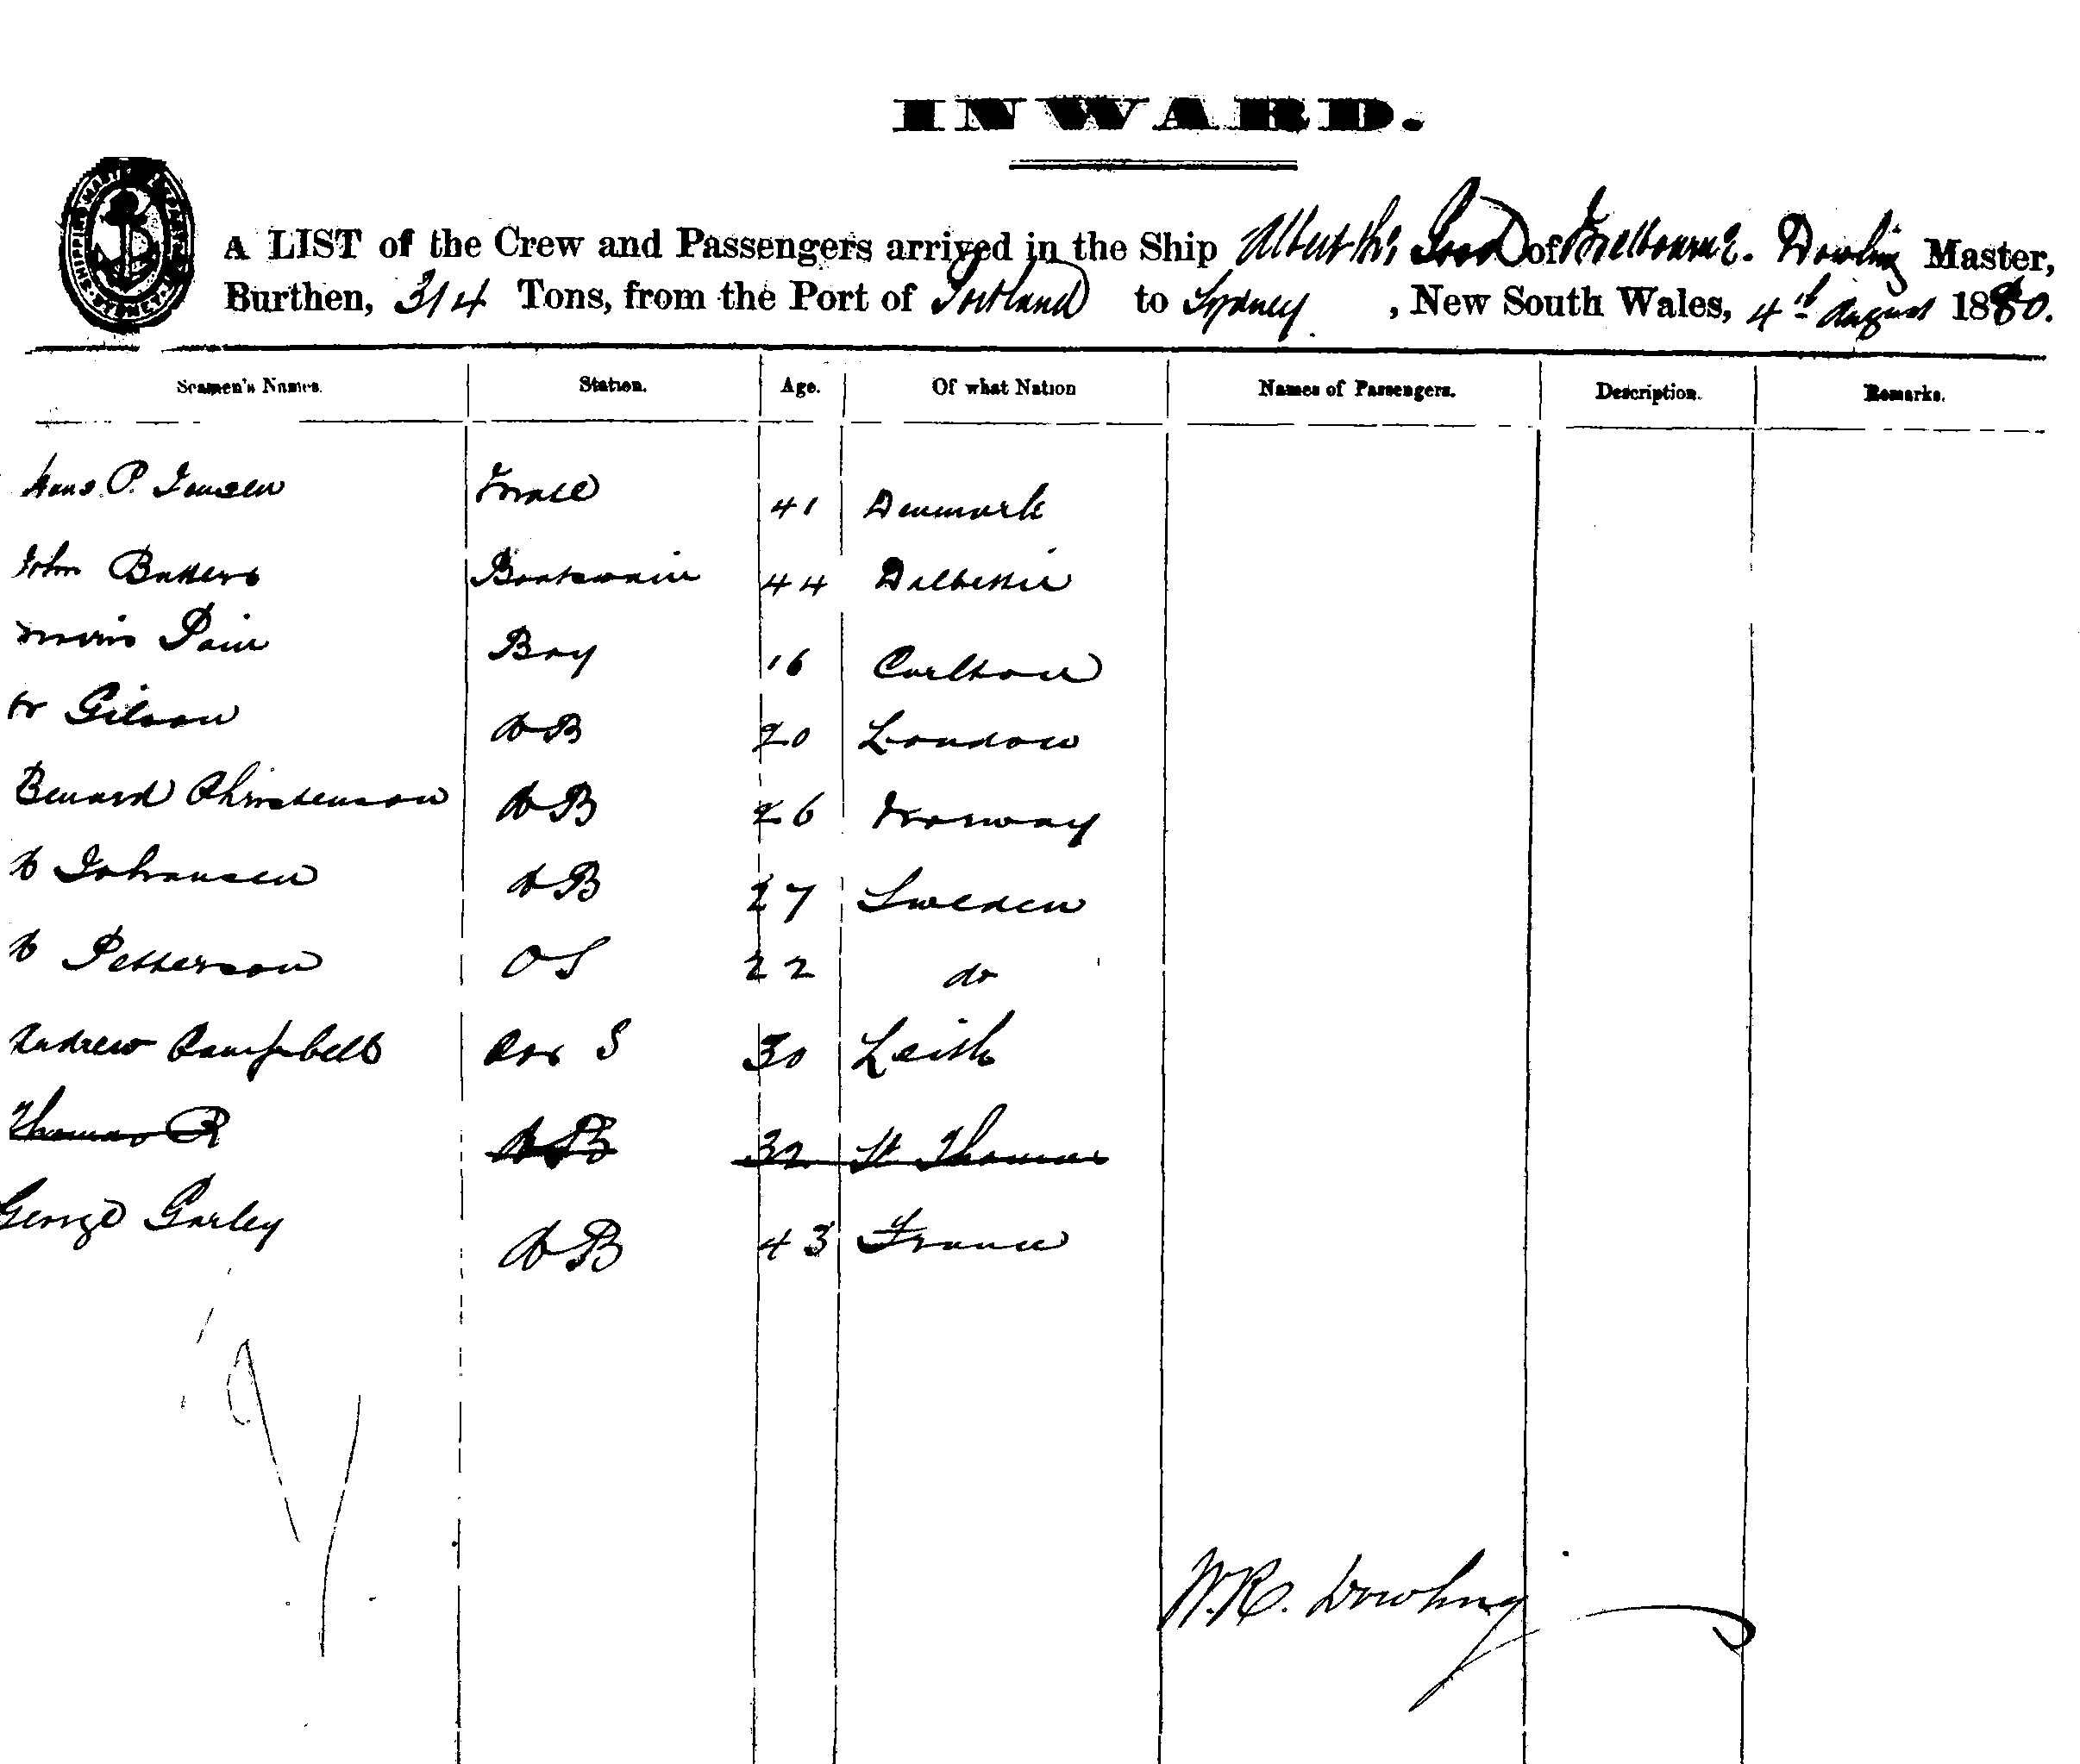 INWARD.
A LIST of the Crew and Passengers arrived in the Ship Albert the Good of Melbourne. Dowling Master,
Burthen, 314 Tons, from the Port of Portland to Sydney, New South Wales, 4th August 1880.
Seamen's Names. Station. Age. Of what Nation Names of Passengers. Description. Remarks.
Hans P. Jansen Mate 41 Denmark
John Boatswain 44
Pain Boy 16 Carlton
Gilson AB 20 London
Benard Christenson AB 26 Norway
A Johansen AB 27 Sweden
A Petterson OS 22 do
Andrew Campbell S 30 Leith
Thomas R AB 32 St Thomas
George Garley AB 43 France
W.R. Dowling